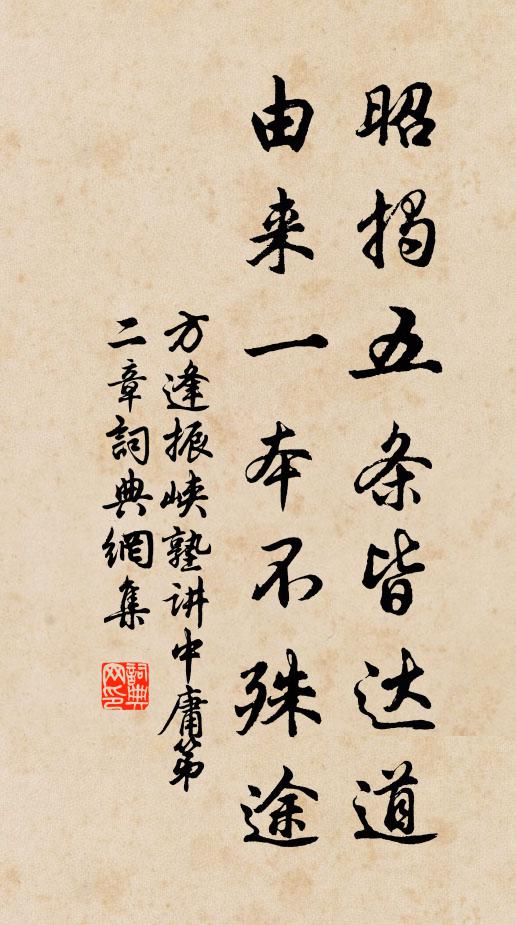 昭揭五条皆达道
由来一本不殊途
方逢振峡塾讲中庸第
二章詞典網集
詞典網印